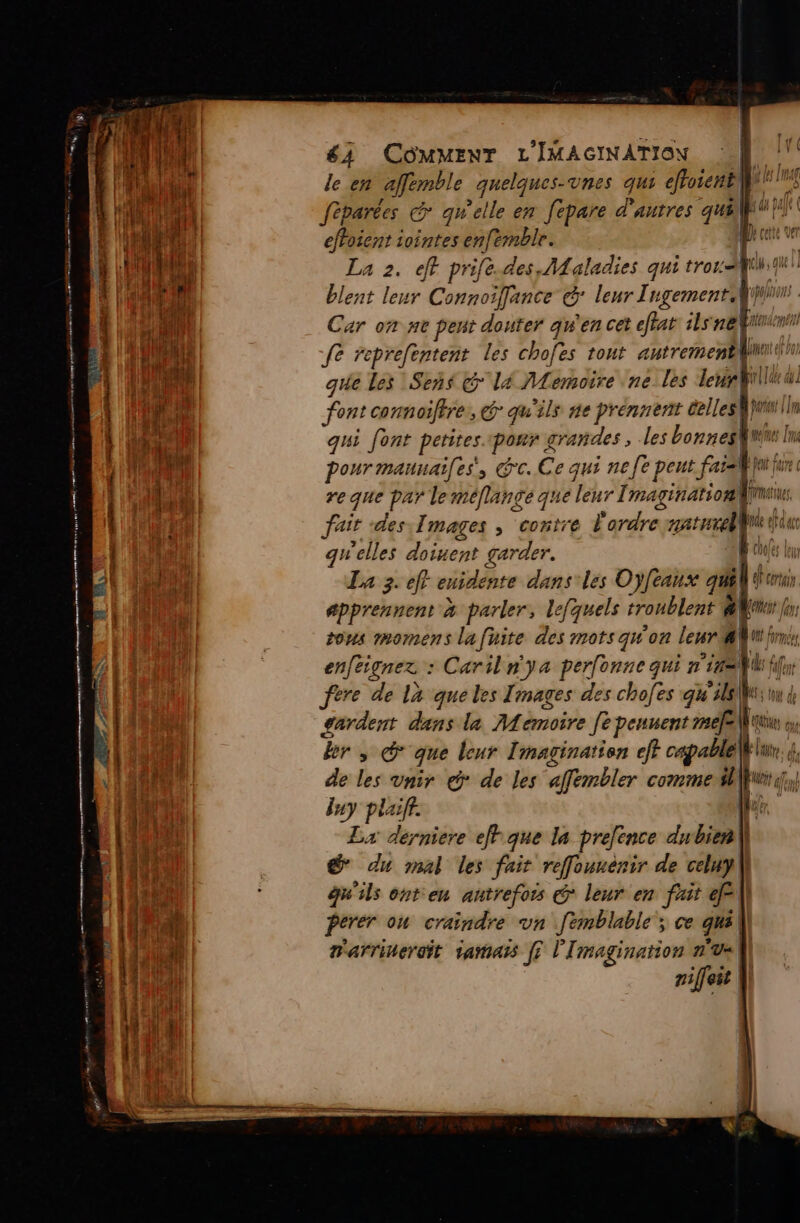 64 COMMENT L'IMAGINATION
le en aſſemble quelques-vnes qui eſtoient
ſeparées & qu'elle en ſepare d'autres qui
eſtoient iointes enſemble.
La 2. eſt priſe des Maladies qui trou-
blent leur Connoiſſance & leur Iugement.
Car on ne peut douter qu'en cet eſtat ils ne
ſe repreſentent les choſes tout autrement
que les Sens & la Memoire ne les leur
font connoiſtre, & qu'ils ne prennent celles
qui ſont petites pour grandes, les bonnes
pour mauuaiſes, &c. Ce qui ne ſe peut fai-
re que par le méſlange que leur Imagination
fait des Images, contre l'ordre naturel
qu'elles doiuent garder.
La 3. eſt euidente dans les Oyſeaux qui
apprennent à parler, leſquels troublent à
tous momens la ſuite des mots qu'on leur a
enſeignez : Car il n'y a perſonne qui n'in-
fere de là que les Images des choſes qu'ils
gardent dans la Memoire ſe peuuent meſ-
ler, & que leur Imagination eſt capable
de les vnir & de les aſſembler comme il
luy plaiſt.
La derniere eſt que la preſence du bien
& du mal les fait reſſouuenir de celuy
qu'ils ont eu autrefois & leur en fait eſ-
perer ou craindre vn ſemblable ; ce qui
n'arriueroit iamais ſi l'Imagination n'v-
niſſoit